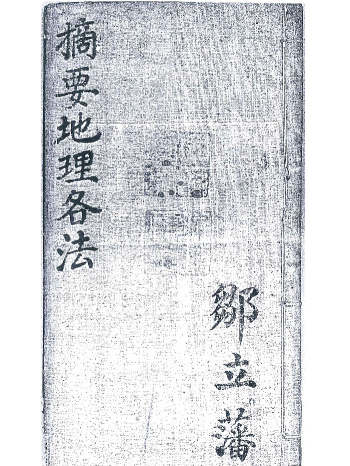 摘要地理各法
鄒立藩